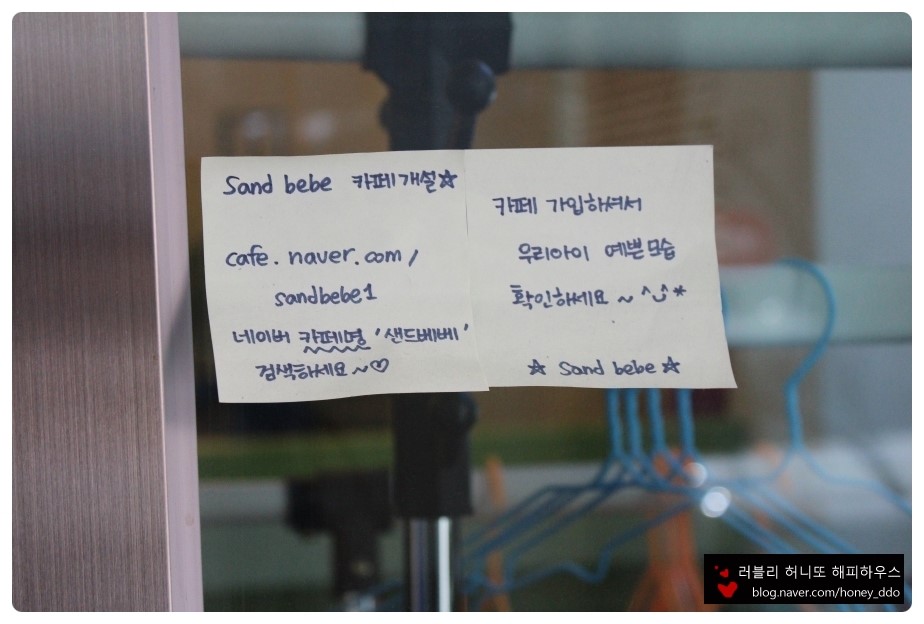 Sand bebe 카페개설☆
cafe.naver.com/
sandbebe1
네이버 카페명 '샌드베베'
검색하세요~♡
카페 가입하셔서
우리아이 예쁜모습
확인하세요~^ڡ^*
☆ Sand bebe☆
러블리 허니또 해피하우스
blog.naver.com/honey_ddo